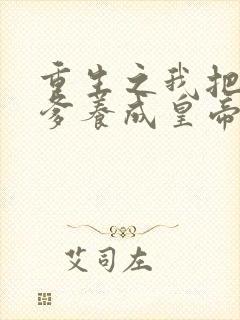 重生之我把
爹养成皇帝
艾司左